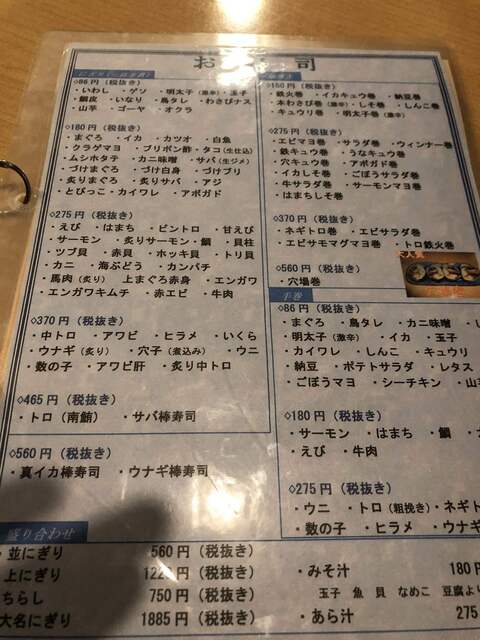 お 司
にぎり
◇86円（税抜き）
・いわし ・ゲソ ・明太子（激辛）・玉子
・鯛皮 ・いなり ・鳥タレ ・わさびナス
・山芋 ・ゴーヤ ・オクラ
◇180円（税抜き）
・まぐろ ・イカ ・カツオ ・白魚
・クラゲマヨ ・ブリポン酢・タコ（生仕込）
・ムシホタテ ・カニ味噌 ・サバ（生ジメ）
・づけまぐろ ・づけ白身 ・づけブリ
・炙りまぐろ ・炙りサバ ・アジ
・とびっこ・カイワレ ・アボガド
◇275円（税抜き）
・えび ・はまち ・ビントロ ・甘えび
・サーモン ・炙りサーモン・鯛 ・貝柱
・ツブ貝 ・赤貝 ・ホッキ貝 ・トリ貝
・カニ ・海ぶどう ・カンパチ
・馬肉（炙り） 上まぐろ赤身 ・エンガワ
・エンガワキムチ ・赤エビ ・牛肉
◇370円（税抜き）
・中トロ ・アワビ ・ヒラメ ・いくら
・ウナギ（炙り） ・穴子（煮込み） ・ウニ
・数の子 ・アワビ肝 ・炙り中トロ
◇465円（税抜き）
・トロ（南鮪） ・サバ棒寿司
◇560円（税抜き）
・真イカ棒寿司 ・ウナギ棒寿司
◇150円（税抜き）
・鉄火巻 ・イカキュウ巻 ・納豆巻
・本わさび巻（激辛）・しそ巻 ・しんこ巻
・キュウリ巻 ・明太子巻（激辛）
◇275円（税抜き）
・エビマヨ巻 ・サラダ巻 ・ウィンナー巻
・鉄キュウ巻 ・うなキュウ巻
・穴キュウ巻 ・アボガド巻
・イカしそ巻 ・ごぼうサラダ巻
・牛サラダ巻 ・サーモンマヨ巻
・はまちしそ巻
◇370円（税抜き）
・ネギトロ巻 ・エビサラダ巻
・エビサモマグマヨ巻 ・トロ鉄火巻
◇560円（税抜き）
・穴場巻
手巻
◇86円（税抜き）
・まぐろ ・鳥タレ ・カニ味噌
・明太子（激辛） ・イカ ・玉子
・カイワレ ・しんこ ・キュウリ
・納豆 ・ポテトサラダ ・レタス
・ごぼうマヨ ・シーチキン ・山
◇180円（税抜き）
・サーモン ・はまち ・鯛
・えび ・牛肉
◇275円（税抜き）
・ウニ ・トロ（粗挽き）・ネギト
・数の子 ・ヒラメ ・ウナギ
盛り合わせ
・並にぎり 560円（税抜き）
・上にぎり （税抜き）
ちらし 750円（税抜き）
大名にぎり 1885円（税抜き）
・みそ汁 180円
玉子 魚 貝 なめこ 豆腐より
・あら汁 275